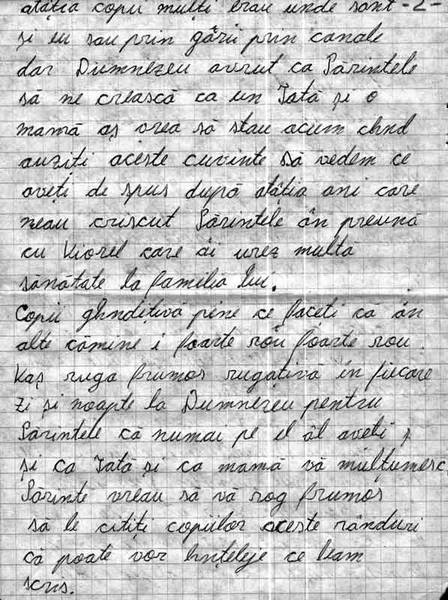 atâția copii mulți erau unde sânt -2-
și eu sau prin gării prin canale
dar Dumnezeu avrut ca Părintele
să ne crească ca un Tată și o
mamă aș vrea să stau acum când
auziți aceste cuvinte să vedem ce
aveți de spus după atâția ani care
neau criscut Părintele ân preună
cu Viorel care âi urez multa
sănătate la familia lui.
Copii gânditivă pine ce faceti că ân
alte cămine i foarte rău foarte rău
Vaș ruga frumos rugativa in fiecare
zi și noapte la Dumnezeu pentru
Părintele că numai pe el âl aveti
și ca Tată și ca mamă vă mulțumesc
Părinte vreau să vă rog frumos
să le citiți copiilor aceste rânduri
că poate vor ânțeleje ce leam
scris.